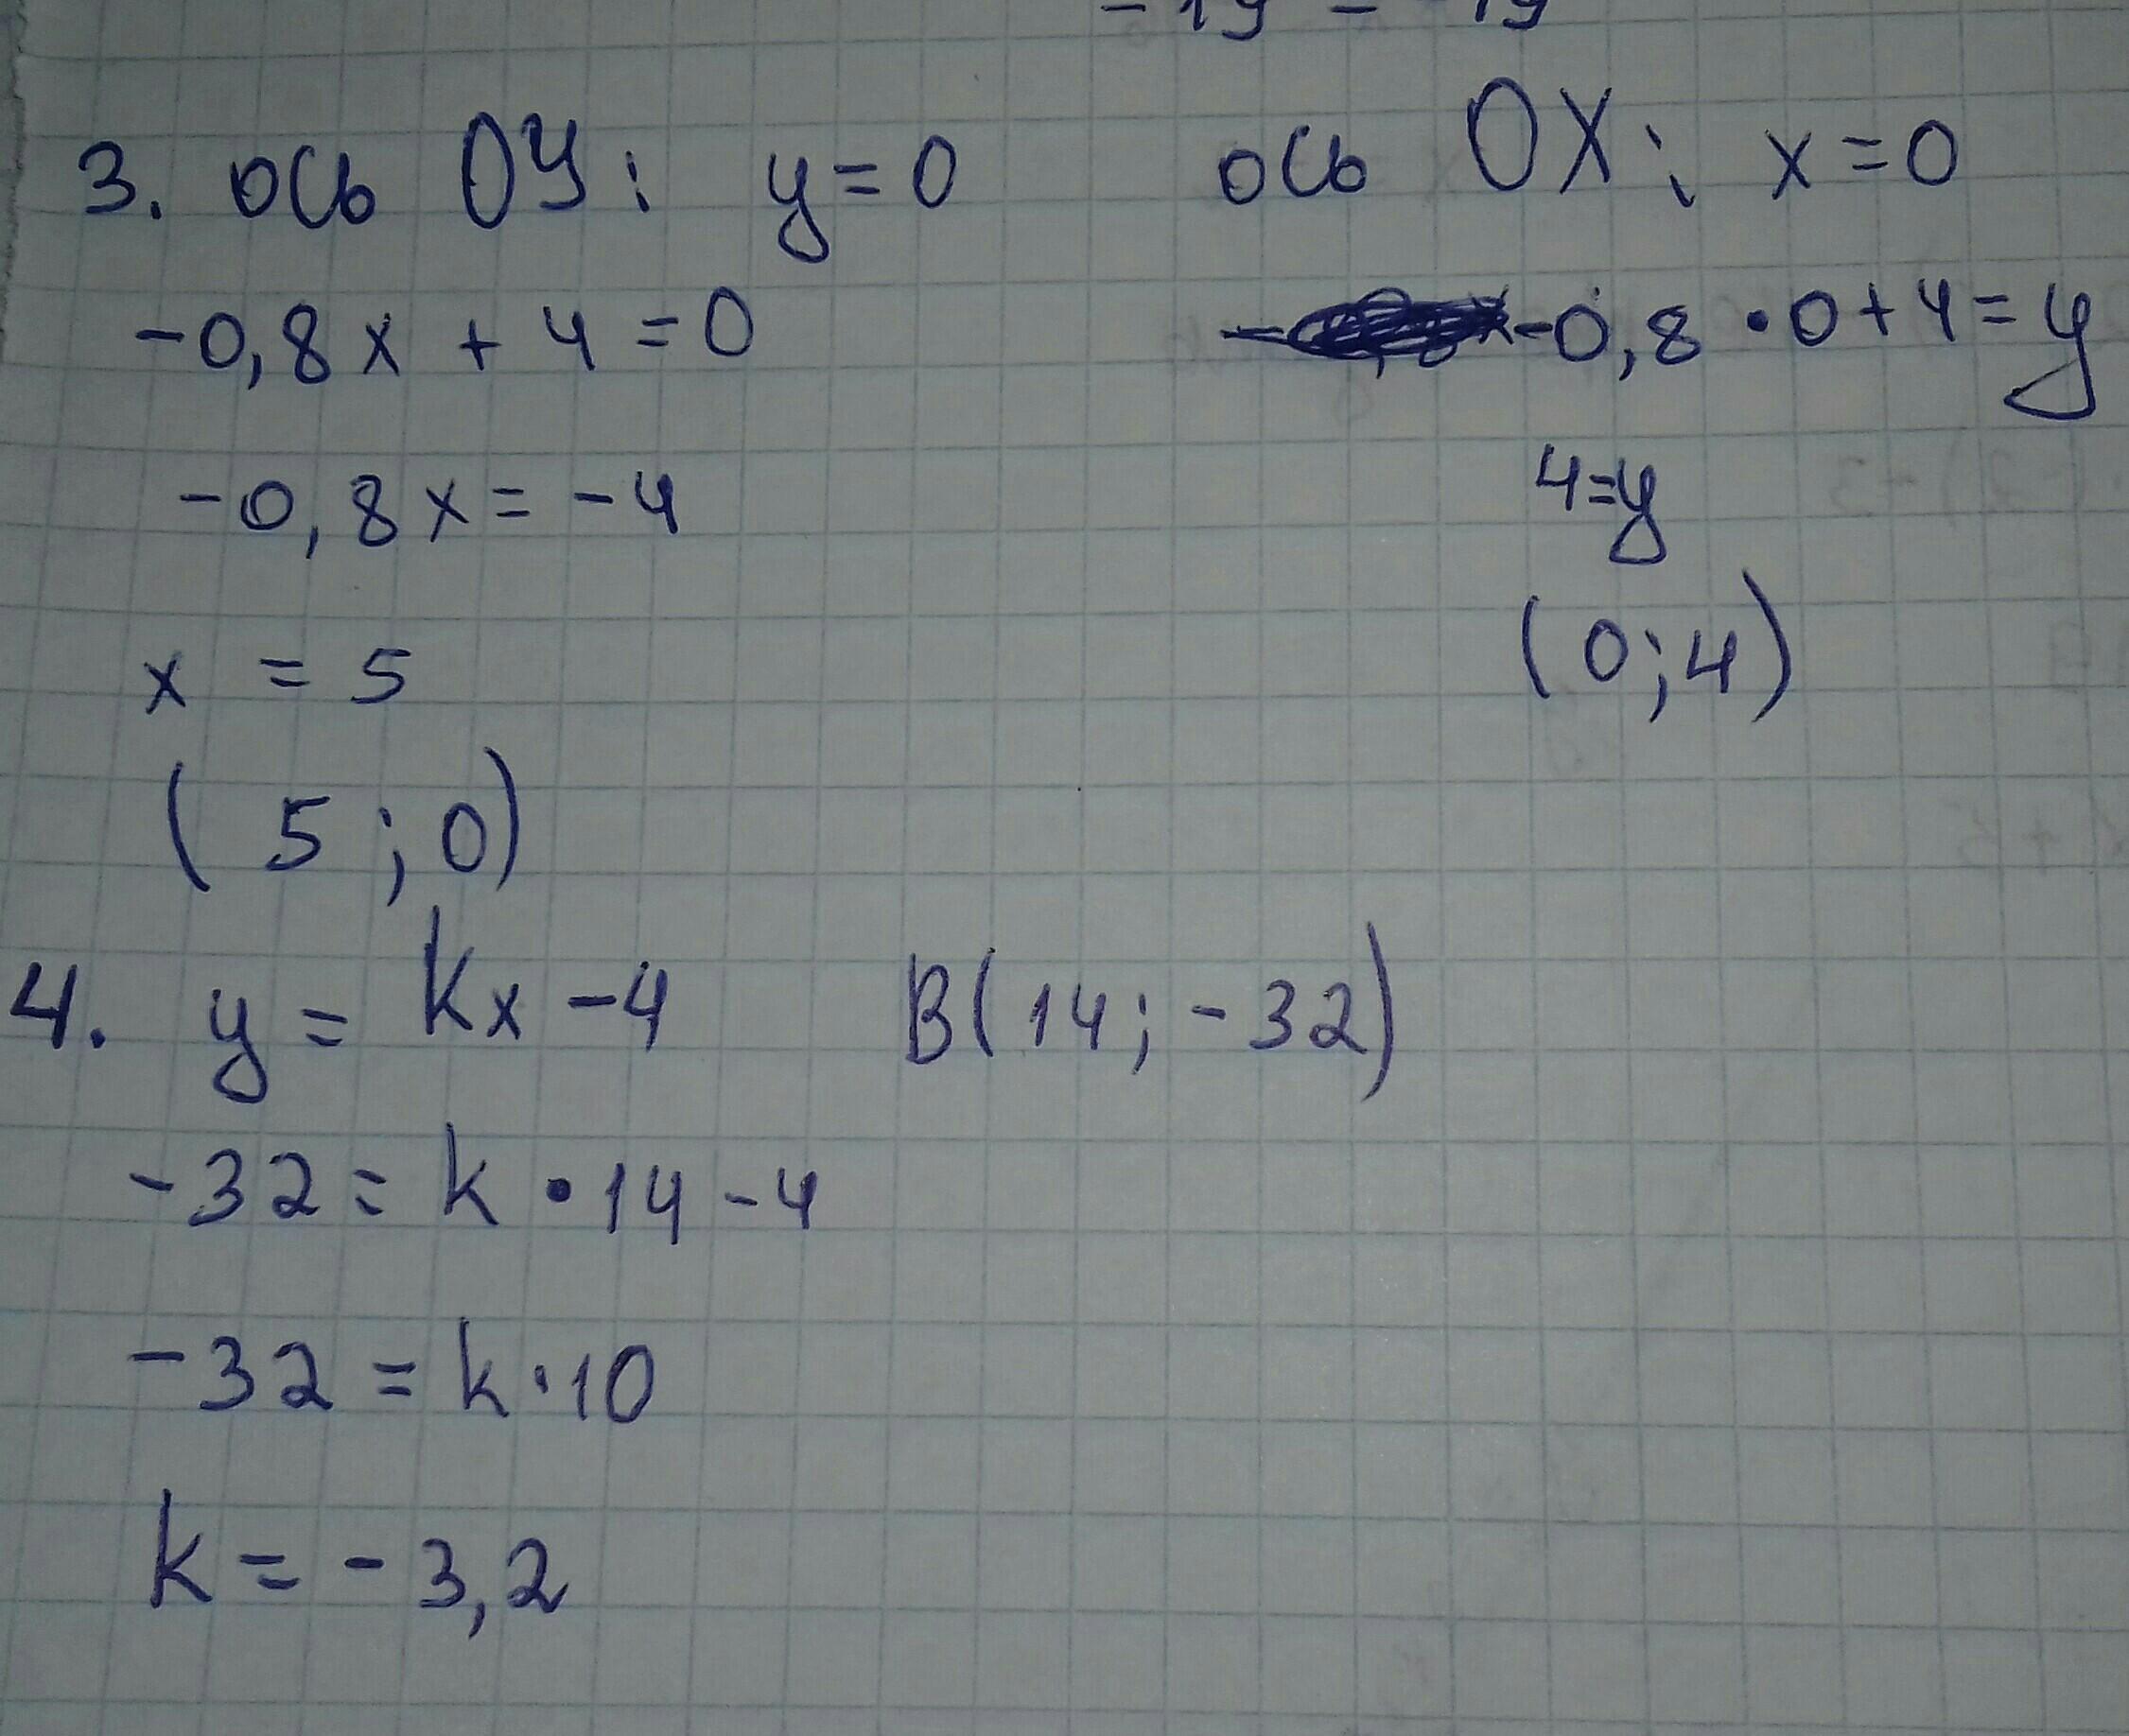 3. ось ОУ: y=0
-0,8x + 4 = 0
-0,8x = -4
x = 5
(5; 0)
ось ОХ: x=0
-0,8 • 0 + 4 = y
4=y
(0; 4)
4. y = kx - 4 B(14; -32)
-32 = k • 14 - 4
-32 = k · 10
k = - 3,2